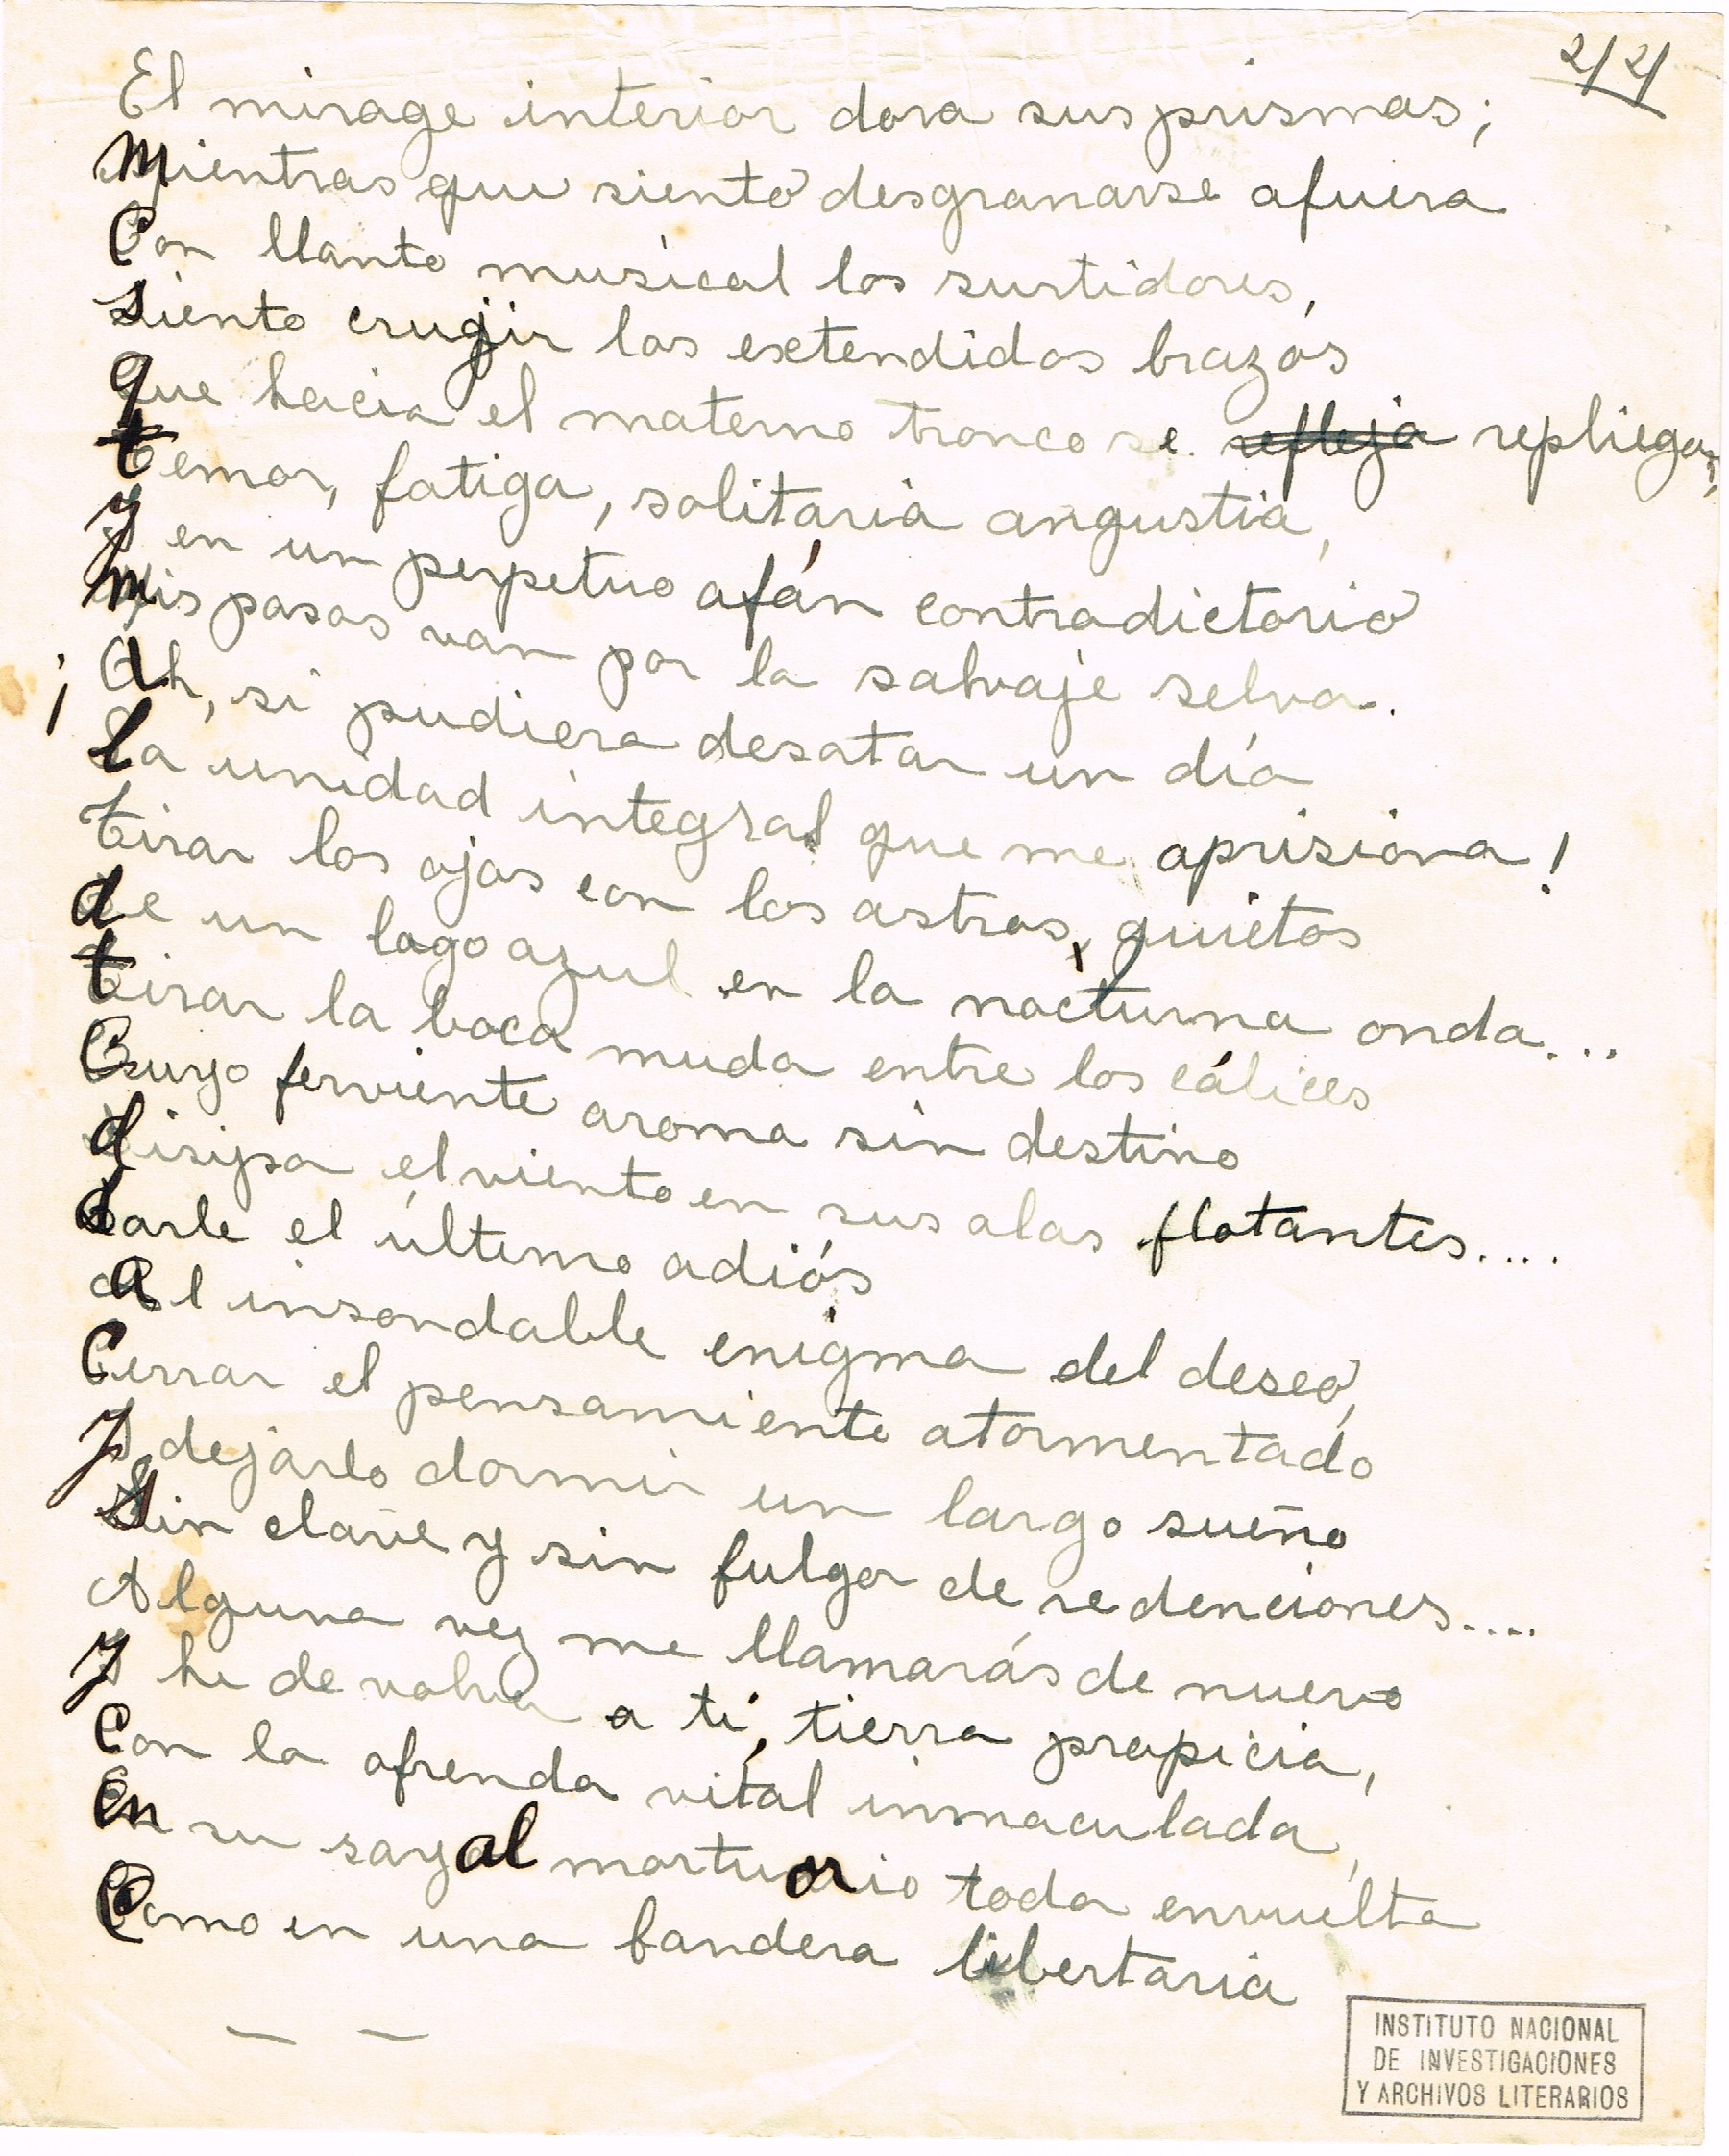 2/2/
El mirage interior dora sus prismas;
Mientras que siento desgranarse afuera
Con llanto musical los surtidores,
Siento crugir los extendidos brazos
que hacia el materno tronco se refleja repliegan;
temor, fatiga, solitaria angustia,
y en un perpetuo afán contradictorio
Mis pasos van por la salvaje selva.
¡Ah, si pudiera desatar un día
La unidad integral que me aprisiona!
tirar los ojos con los astros, quietos
de un lago azul en la nocturna onda...
tirar la boca muda entre los cálices
Cuyo ferviente aroma sin destino
disipa el viento en sus alas flotantes....
darle el último adiós
al insondable enigma del deseo,
Cerrar el pensamiento atormentado
y dejarlo dormir un largo sueño
Sin clave y sin fulgor de redenciones....
Alguna vez me llamarás de nuevo
y he de volver a tí, tierra propicia,
Con la ofrenda vital inmaculada,
En su sayal mortuorio toda envuelta
Como en una bandera libertaria
INSTITUTO NACIONAL
DE INVESTIGACIONES
Y ARCHIVOS LITERARIOS